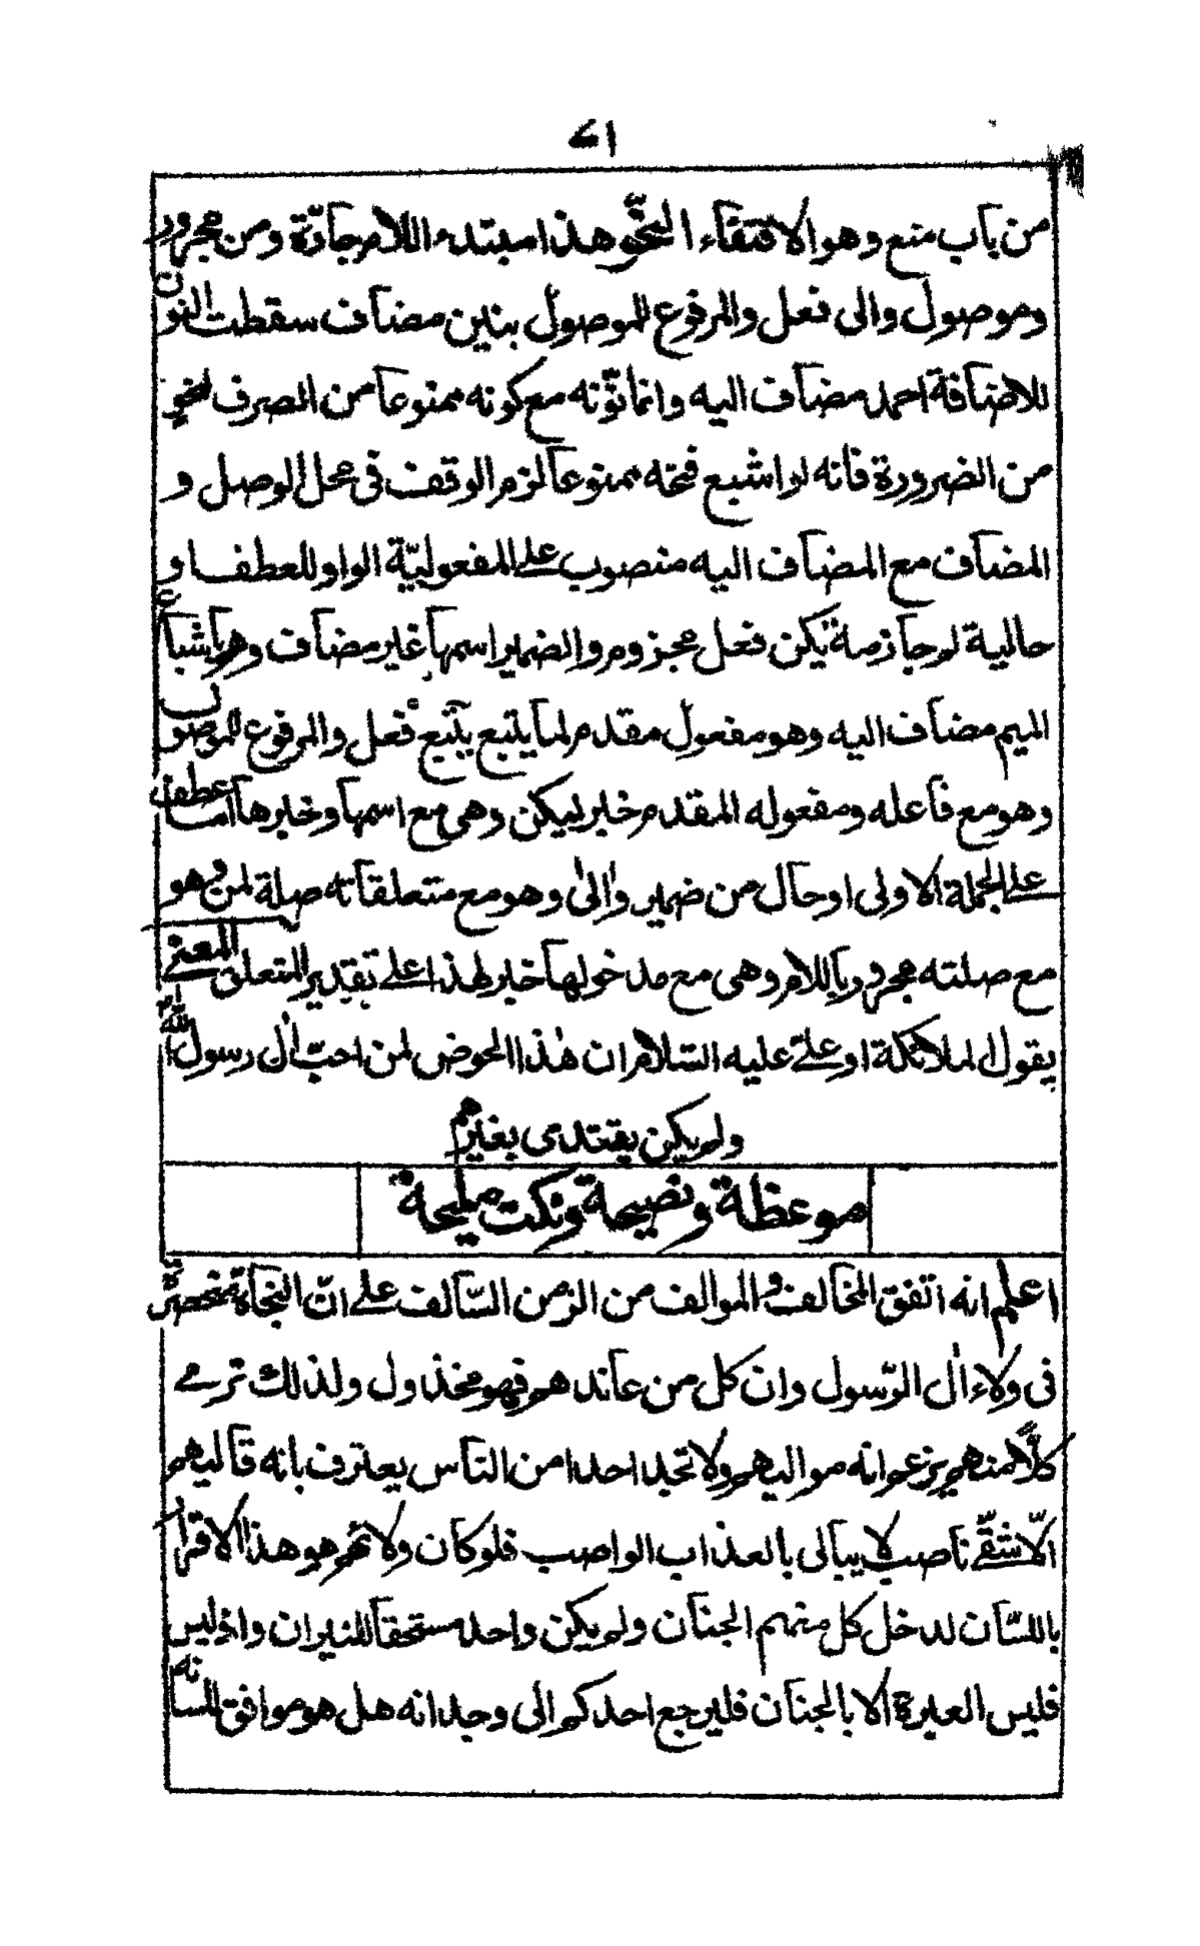 ٤١
من باب منع وهو الاقتفاء النحو هذا مبتدء اللام جارّة ومن مجرور
وموصول والى فعل والمرفوع للموصول بنين مضاف سقطت النون
للاضافة احمد مضاف اليه وانما نوّنه مع كونه ممنوعا من الصرف لنحو
من الضرورة فانه لو اشبع فتحه ممنوعا لزم الوقف فى محل الوصل و
المضاف مع المضاف اليه منصوب على المفعوليّة الواو للعطف او
حالية لم جازمة يكن فعل مجزوم والضمير اسمها غير مضاف وهم باشباع
الميم مضاف اليه وهو مفعول مقدم لما يتبع يتبع فعل والمرفوع للموصول
وهو مع فاعله ومفعوله المقدم خبر ليكن وهى مع اسمها وخبرها اما عطف
على الجملة الاولى او حال من ضمير والى وهو مع متعلقاته صلة لمن وهو
مع صلته مجرور باللام وهى مع مدخولها خبر لهذا على تقدير المتعلق المعنى
يقول الملائكة او علىّ عليه السّلام ان هذا الحوض لمن احبّ ال رسول اللّٰه
ولم يكن يقتدى بغيرهم
موعظة ونصيحة ونكت مليحة
اعلم انه اتفق المخالف والموالف من الزمن السّالف على انّ النجاة منحصرة
فى ولاء ال الرّسول وان كل من عاندهم فهو مخذول ولذلك ترى
كلاًّ منهم يزعم انه مواليهم ولا تجد احدا من النّاس يعترف بانه قاليهم
الّا شقّى ناصب لا يبالى بالعذاب الواصب فلو كان ولائهم هو هذا الاقرار
باللسّان لدخل كل منهم الجنان ولم يكن واحد مستحقا للنيران واذ ليس
فليس العبرة الا بالجنان فليرجع احدكم الى وجدانه هل هو موافق للسانه